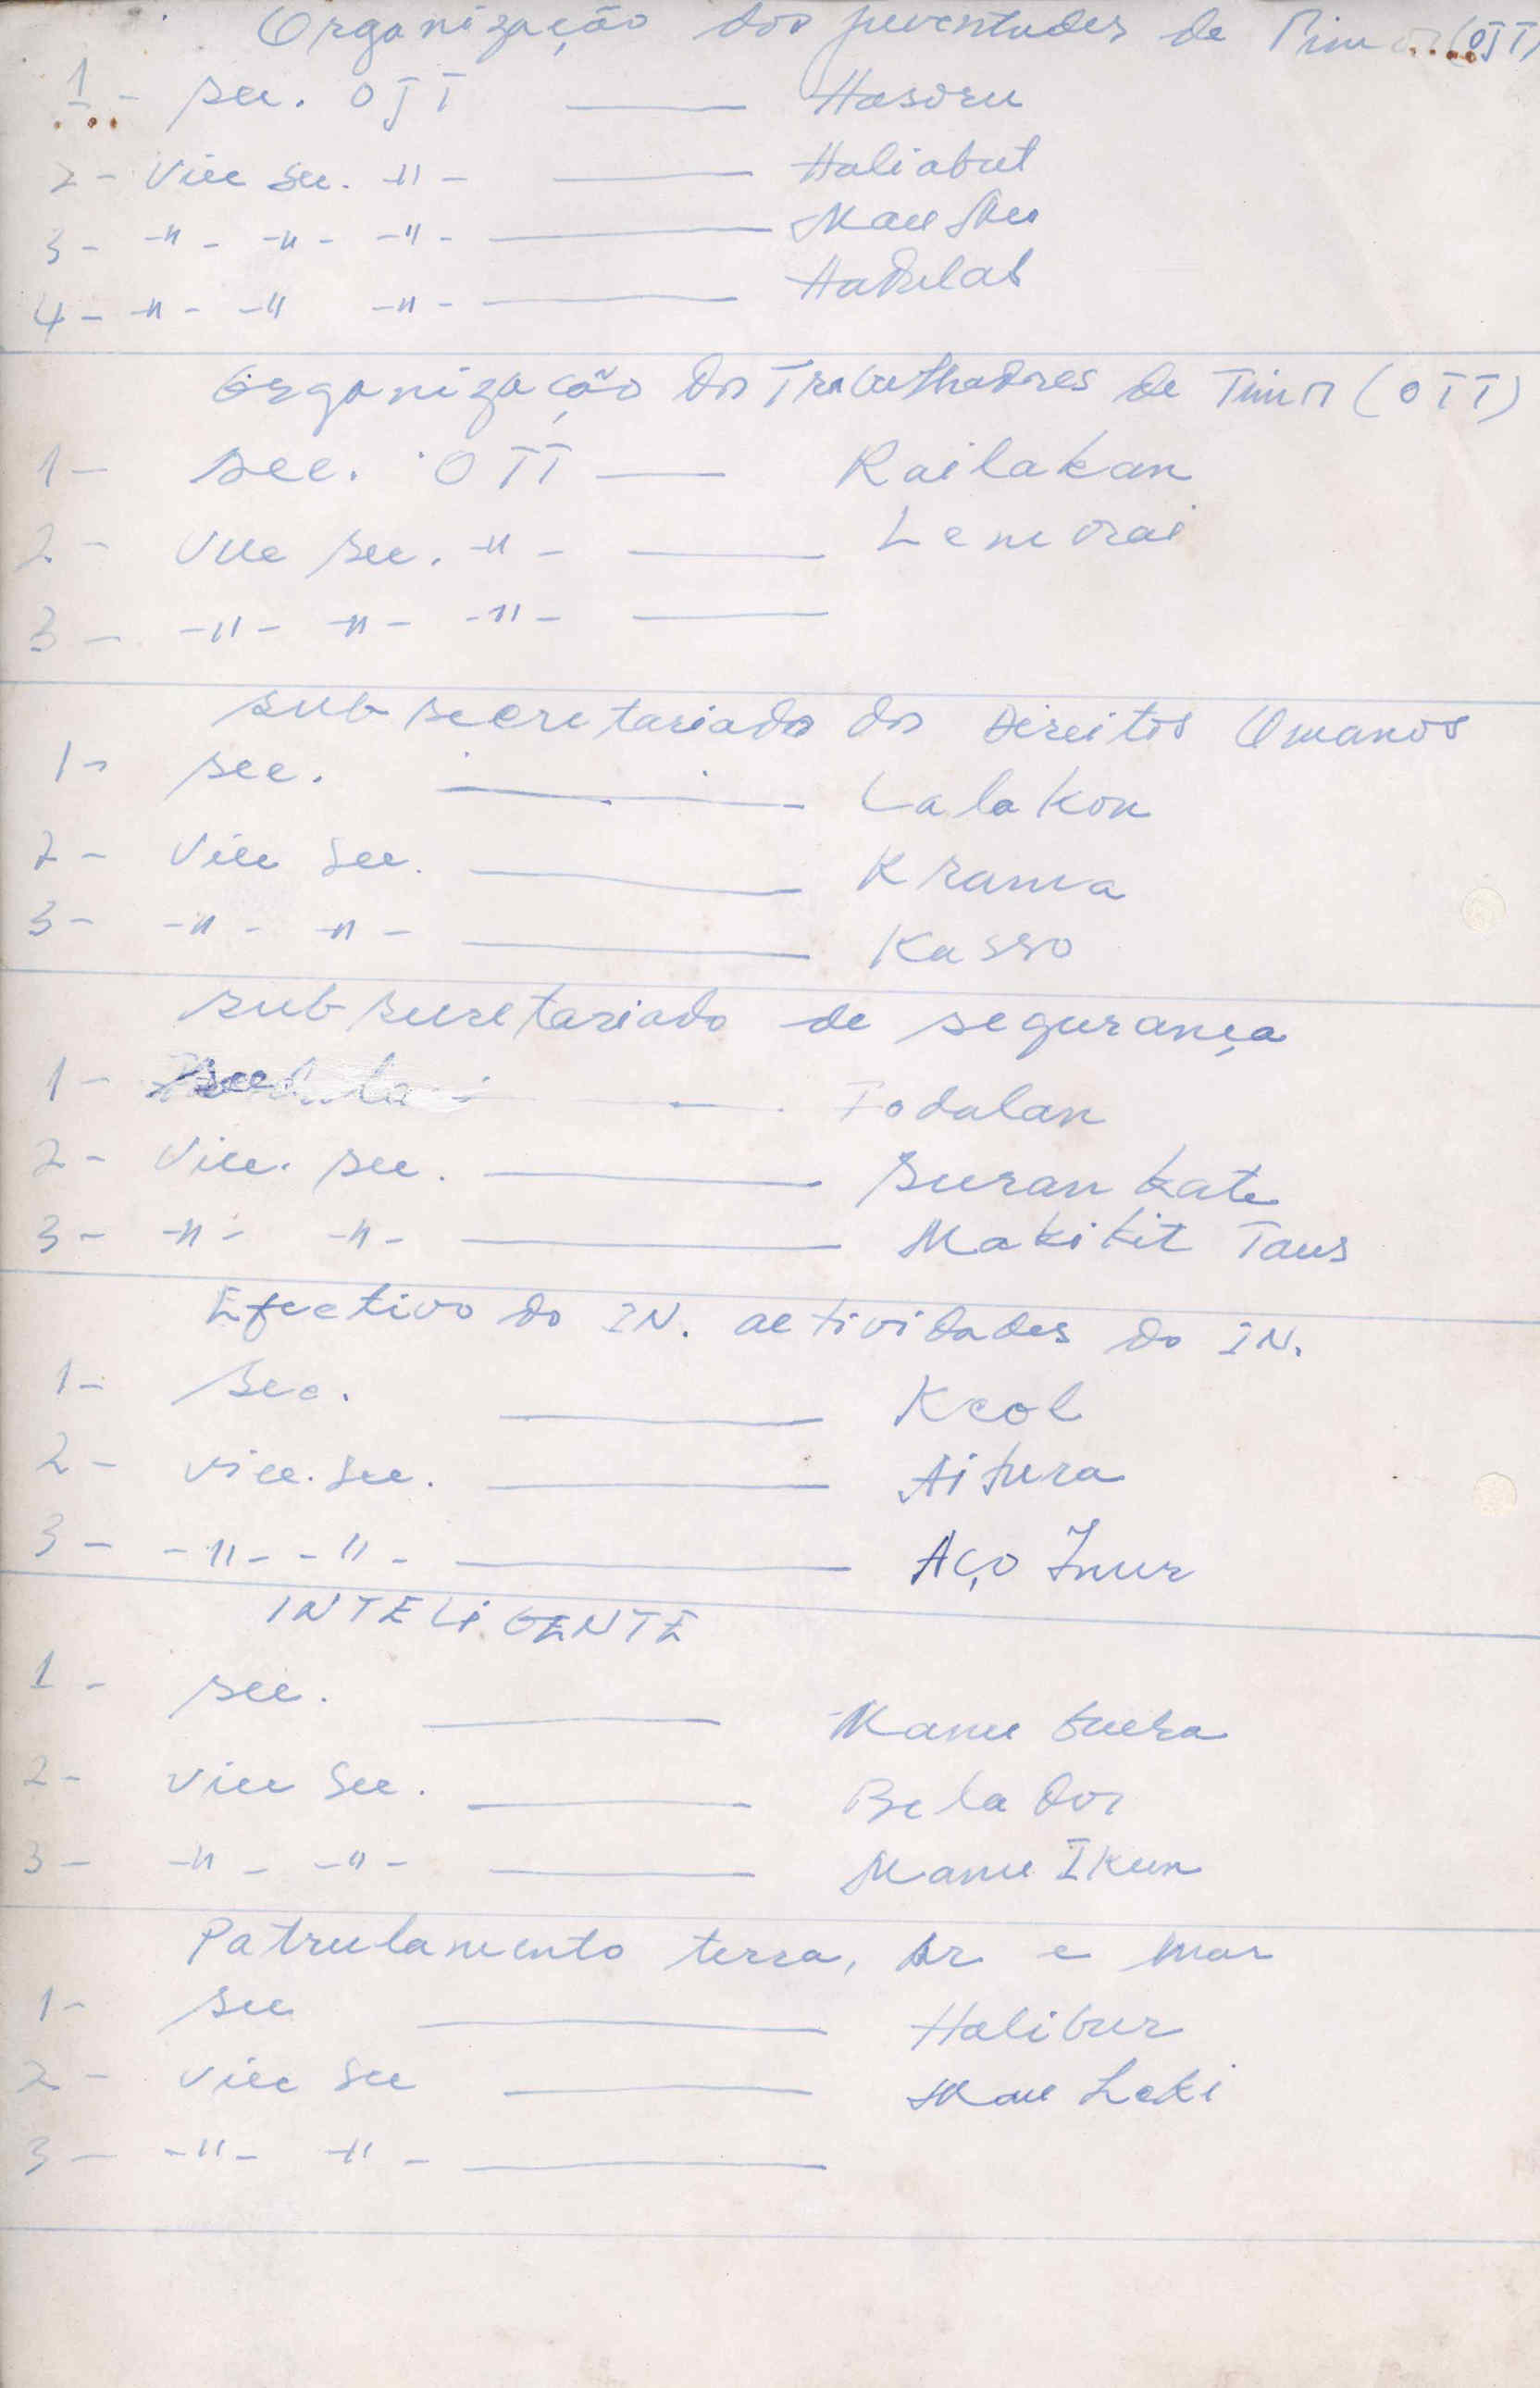 Organização dos juventudes de Timor (OJT)
1 - sec. OJT — Hasoru
2 - Vice sec. -"- — Haliabut
3 - -"- -"- -"- — Mau
4 - -"- -" -"- —
Organização dos Trabalhadores de Timor (OTT)
1 - sec. OTT — Railakan
2 - Vice sec. -"- — Lemorai
3 - -"- -"- -"- —
subsecretariado dos Direitos Omanos
1 - sec. — Lalakon
2 - Vice sec. — Krama
3 - -"- -"- — Kasso
subsecretariado de segurança
1 - sec — Fodalan
2 - Vice. sec. — Suran kate
3 - -"- -"- — Makikit Taus
Efectivo do IN. actividades do IN.
1 - sec. — Keol
2 - vice. sec. — Aitura
3 - -"- -"- — Aço Inur
INTELiGENTE
1 - sec. — Manu
2 - Vice Sec. — Bela Dor
3 - -"- -"- — Manu Ikun
Patrulamento terra, Ar e mar
1 - sec — Halibur
2 - Vice Sec — Mau Leki
3 - -"- -"- —